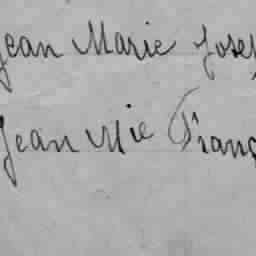 Jean Marie Josep
Jean Mie Franç